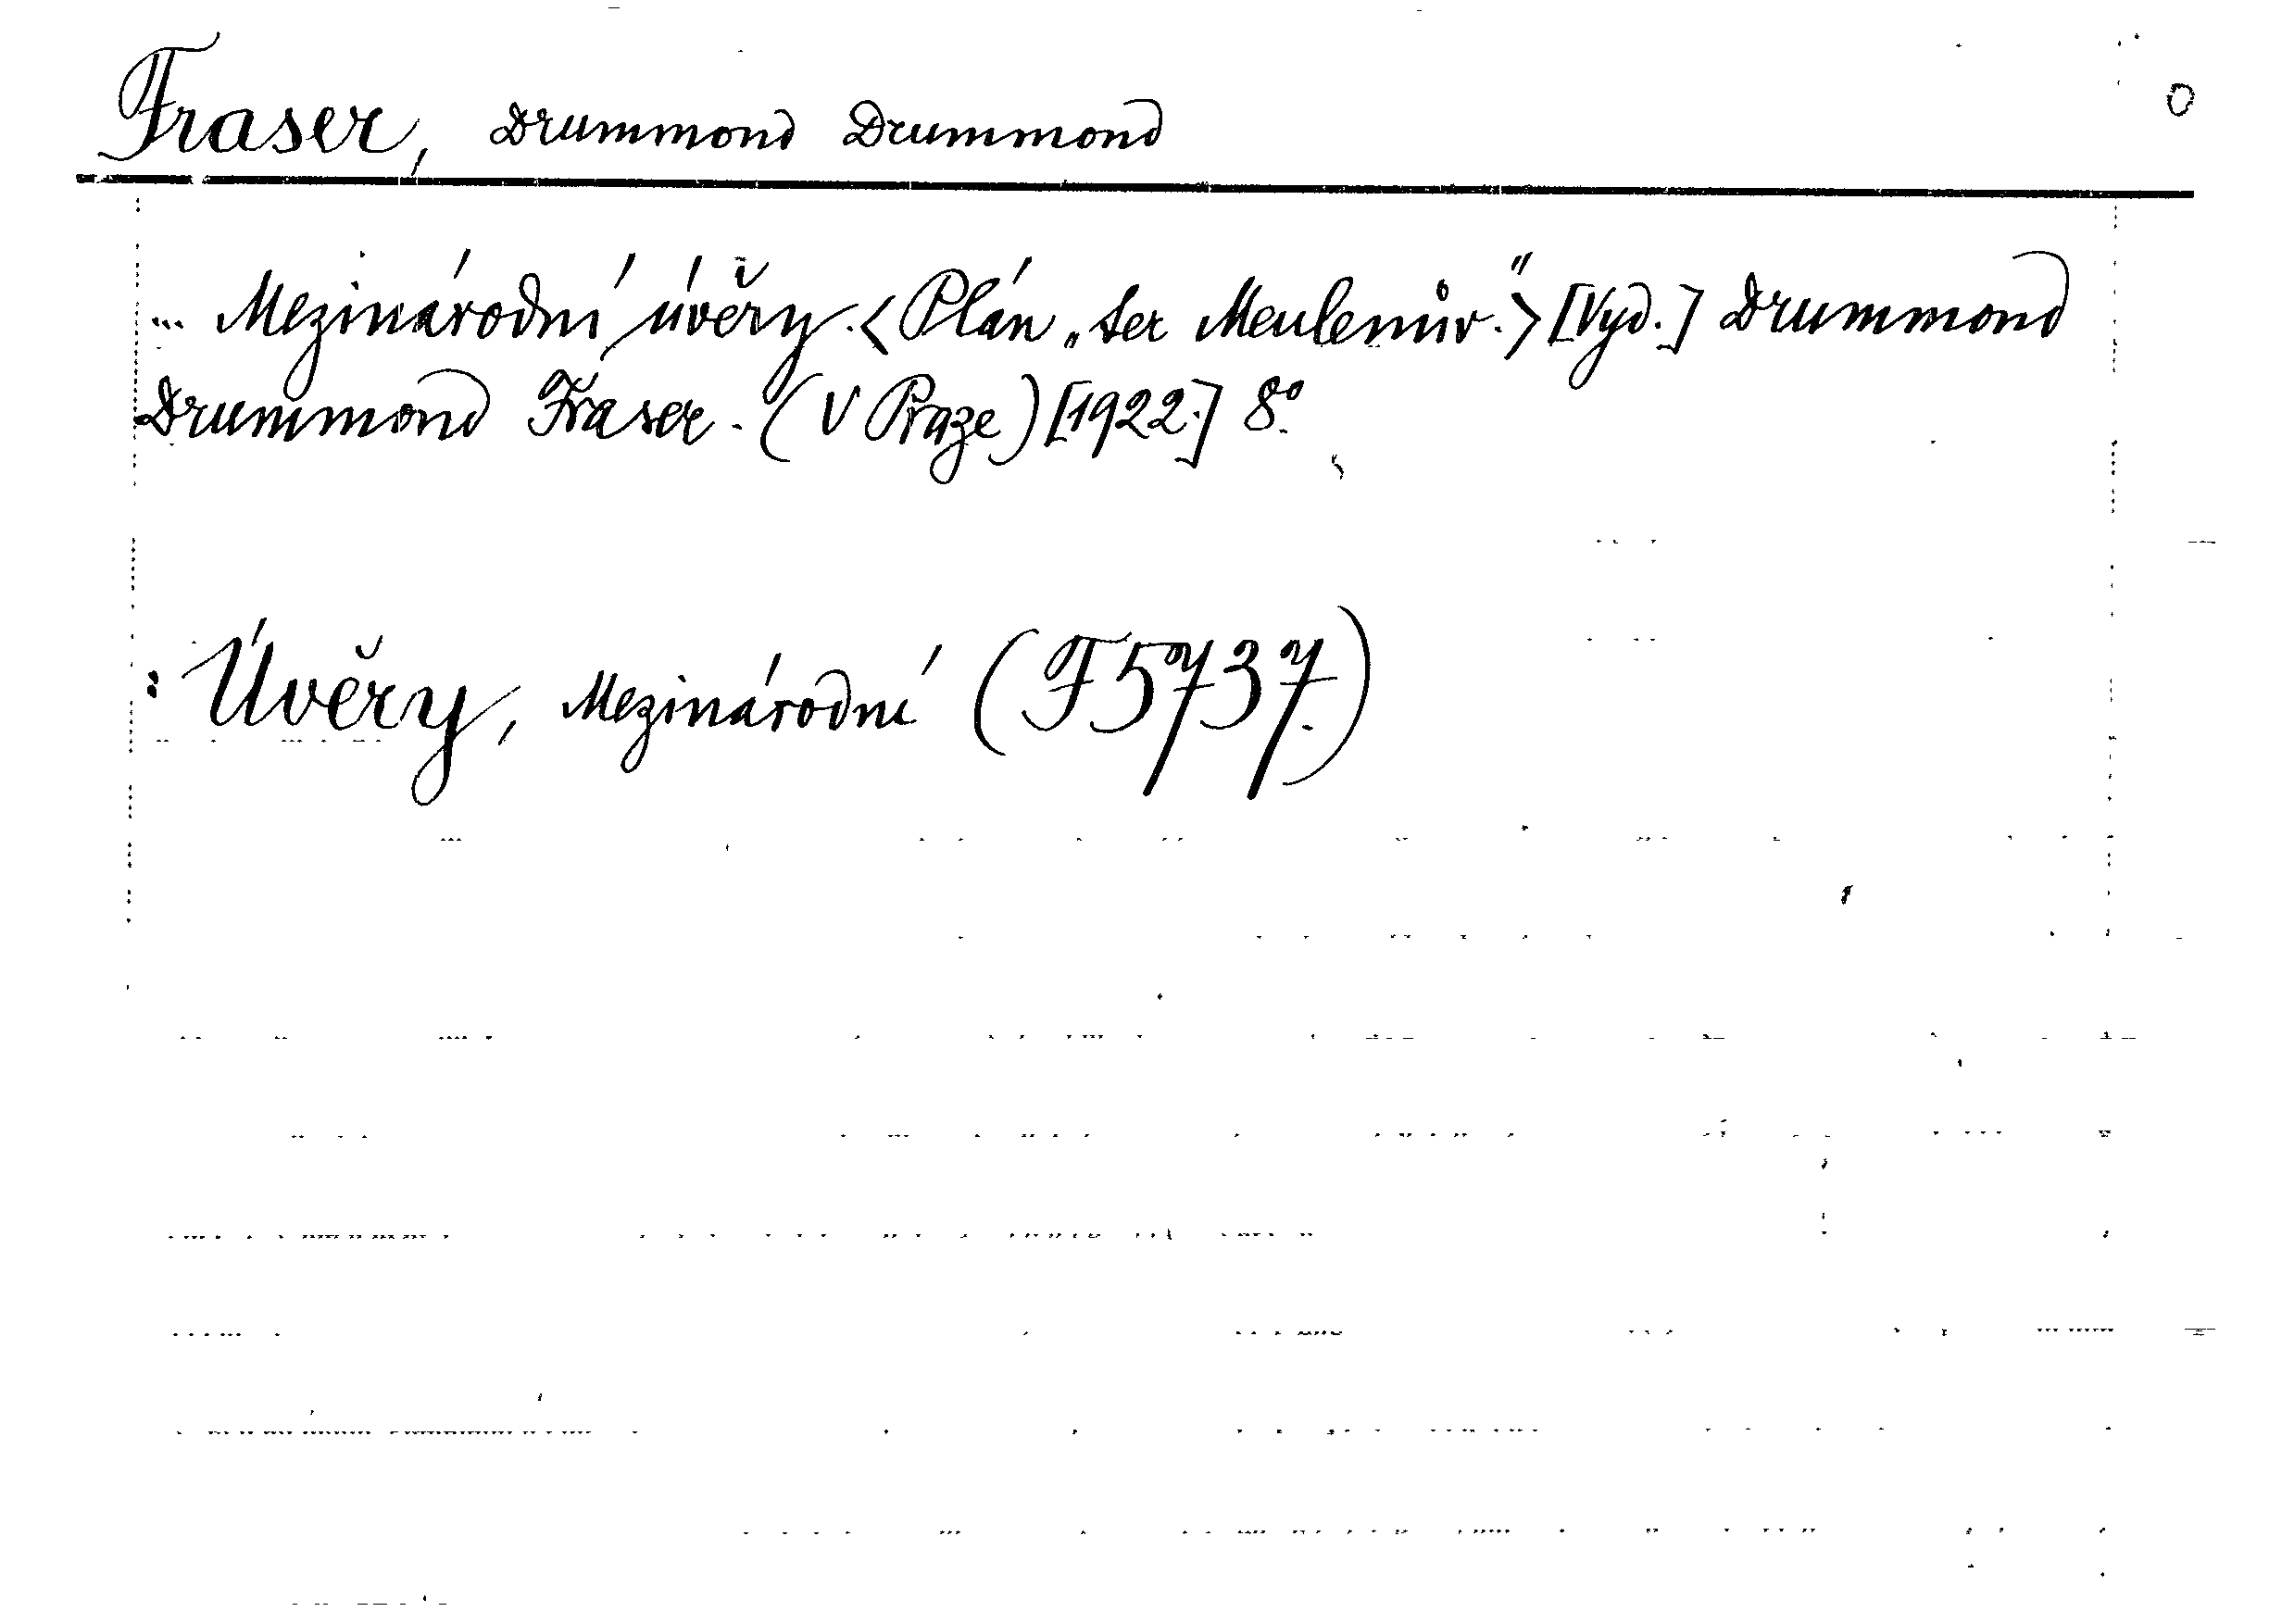 Fraser, Drummond Drummond 0
... Mezinárodní úvěry. <Plán „ter Meulenův.“> [Vyd.] Drummond
Drummond Fraser. (V Praze) [1922.] 8°.
: Úvěry, Mezinárodní (F 5737.)